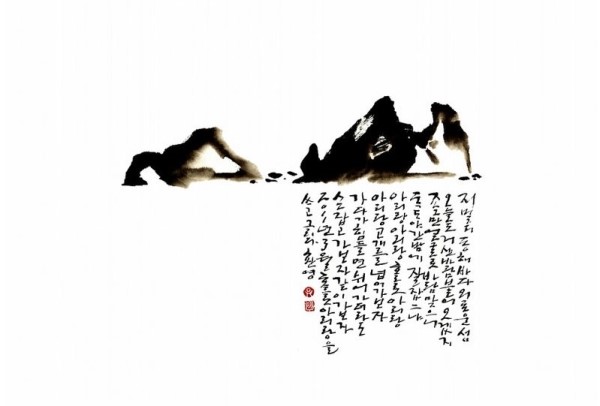 저 멀리 동해바다 외로운 섬
오늘도 거센바람 불어오겠지
조그만 얼굴로 바람맞으니
독도야 간밤에 잘잤느냐
아리랑 아리랑 홀로아리랑
아리랑 고개를 넘어가보자
가다가 힘들면 쉬어가더라도
손잡고 가보자 같이가보자
홀로아리랑을
쓰고 그리다